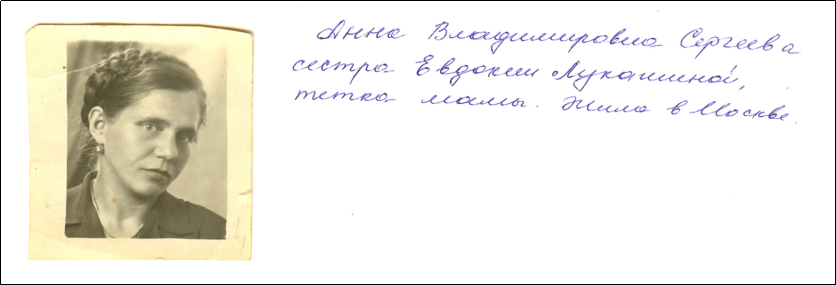 Анна Владимировна Сергеева
сестра Евдокии Лукашиной,
тетка мамы. Жила в Москве.